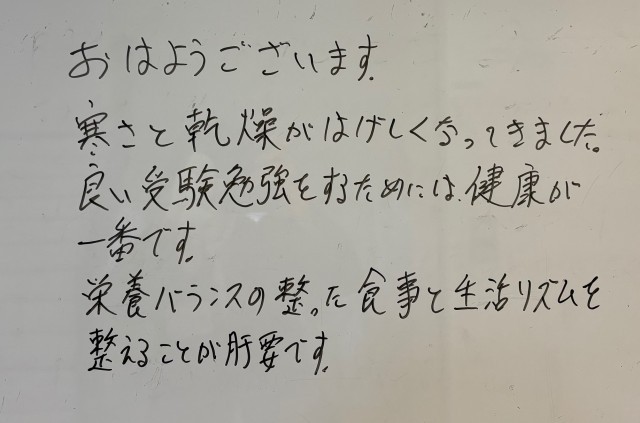 おはようございます.
寒さと乾燥がはげしくなってきました。
良い受験勉強をするためには.健康が
一番です.
栄養バランスの整った食事と生活リズムを
整えることが肝要です.